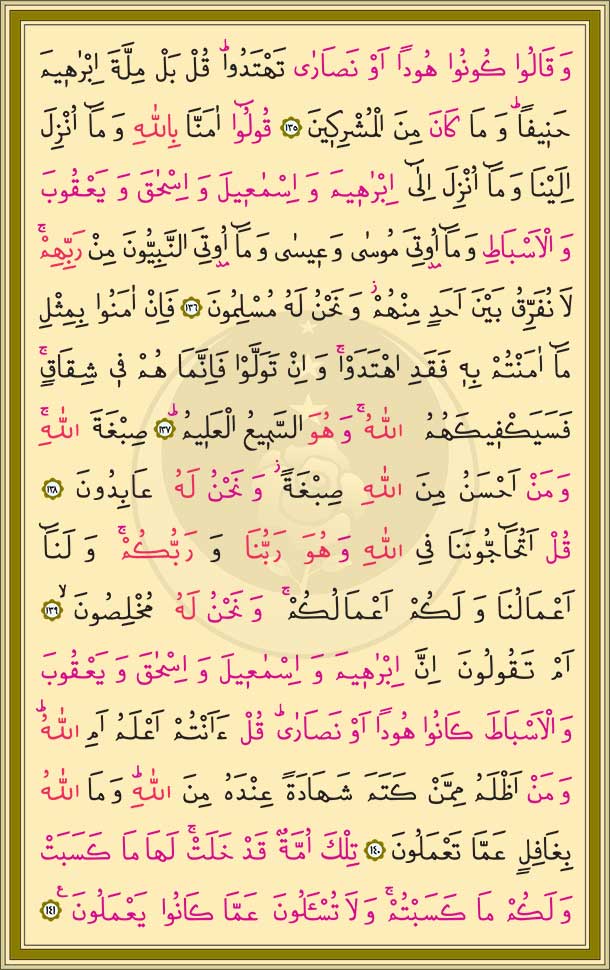 وَقَالُوا كُونُوا هُودًا اَوْ نَصَارٰى تَهْتَدُواۜ قُلْ بَلْ مِلَّةَ اِبْرٰه۪يمَ
حَن۪يفًاۜ وَمَا كَانَ مِنَ الْمُشْرِك۪ينَ ﴿١٣٥﴾ قُولُٓوا اٰمَنَّا بِاللّٰهِ وَمَٓا اُنْزِلَ
اِلَيْنَا وَمَٓا اُنْزِلَ اِلٰٓى اِبْرٰه۪يمَ وَاِسْمٰع۪يلَ وَاِسْحٰقَ وَيَعْقُوبَ
وَالْاَسْبَاطِ وَمَٓا اُو۫تِيَ مُوسٰى وَع۪يسٰى وَمَٓا اُو۫تِيَ النَّبِيُّونَ مِنْ رَبِّهِمْۚ
لَا نُفَرِّقُ بَيْنَ اَحَدٍ مِنْهُمْۘ وَنَحْنُ لَهُ مُسْلِمُونَ ﴿١٣٦﴾ فَاِنْ اٰمَنُوا بِمِثْلِ
مَٓا اٰمَنْتُمْ بِه۪ فَقَدِ اهْتَدَوْاۚ وَاِنْ تَوَلَّوْا فَاِنَّمَا هُمْ ف۪ي شِقَاقٍۚ
فَسَيَكْف۪يكَهُمُ اللّٰهُۚ وَهُوَ السَّم۪يعُ الْعَل۪يمُۜ ﴿١٣٧﴾ صِبْغَةَ اللّٰهِۚ
وَمَنْ اَحْسَنُ مِنَ اللّٰهِ صِبْغَةًۘ وَنَحْنُ لَهُ عَابِدُونَ ﴿١٣٨﴾
قُلْ اَتُحَٓاجُّونَنَا فِي اللّٰهِ وَهُوَ رَبُّنَا وَرَبُّكُمْۚ وَلَنَٓا
اَعْمَالُنَا وَلَكُمْ اَعْمَالُكُمْۚ وَنَحْنُ لَهُ مُخْلِصُونَۙ ﴿١٣٩﴾
اَمْ تَقُولُونَ اِنَّ اِبْرٰه۪يمَ وَاِسْمٰع۪يلَ وَاِسْحٰقَ وَيَعْقُوبَ
وَالْاَسْبَاطَ كَانُوا هُودًا اَوْ نَصَارٰىۜ قُلْ ءَاَنْتُمْ اَعْلَمُ اَمِ اللّٰهُۜ
وَمَنْ اَظْلَمُ مِمَّنْ كَتَمَ شَهَادَةً عِنْدَهُ مِنَ اللّٰهِۜ وَمَا اللّٰهُ
بِغَافِلٍ عَمَّا تَعْمَلُونَ ﴿١٤٠﴾ تِلْكَ اُمَّةٌ قَدْ خَلَتْۚ لَهَا مَا كَسَبَتْ
وَلَكُمْ مَا كَسَبْتُمْۚ وَلَا تُسْـَٔلُونَ عَمَّا كَانُوا يَعْمَلُونَ ع ﴿١٤١﴾